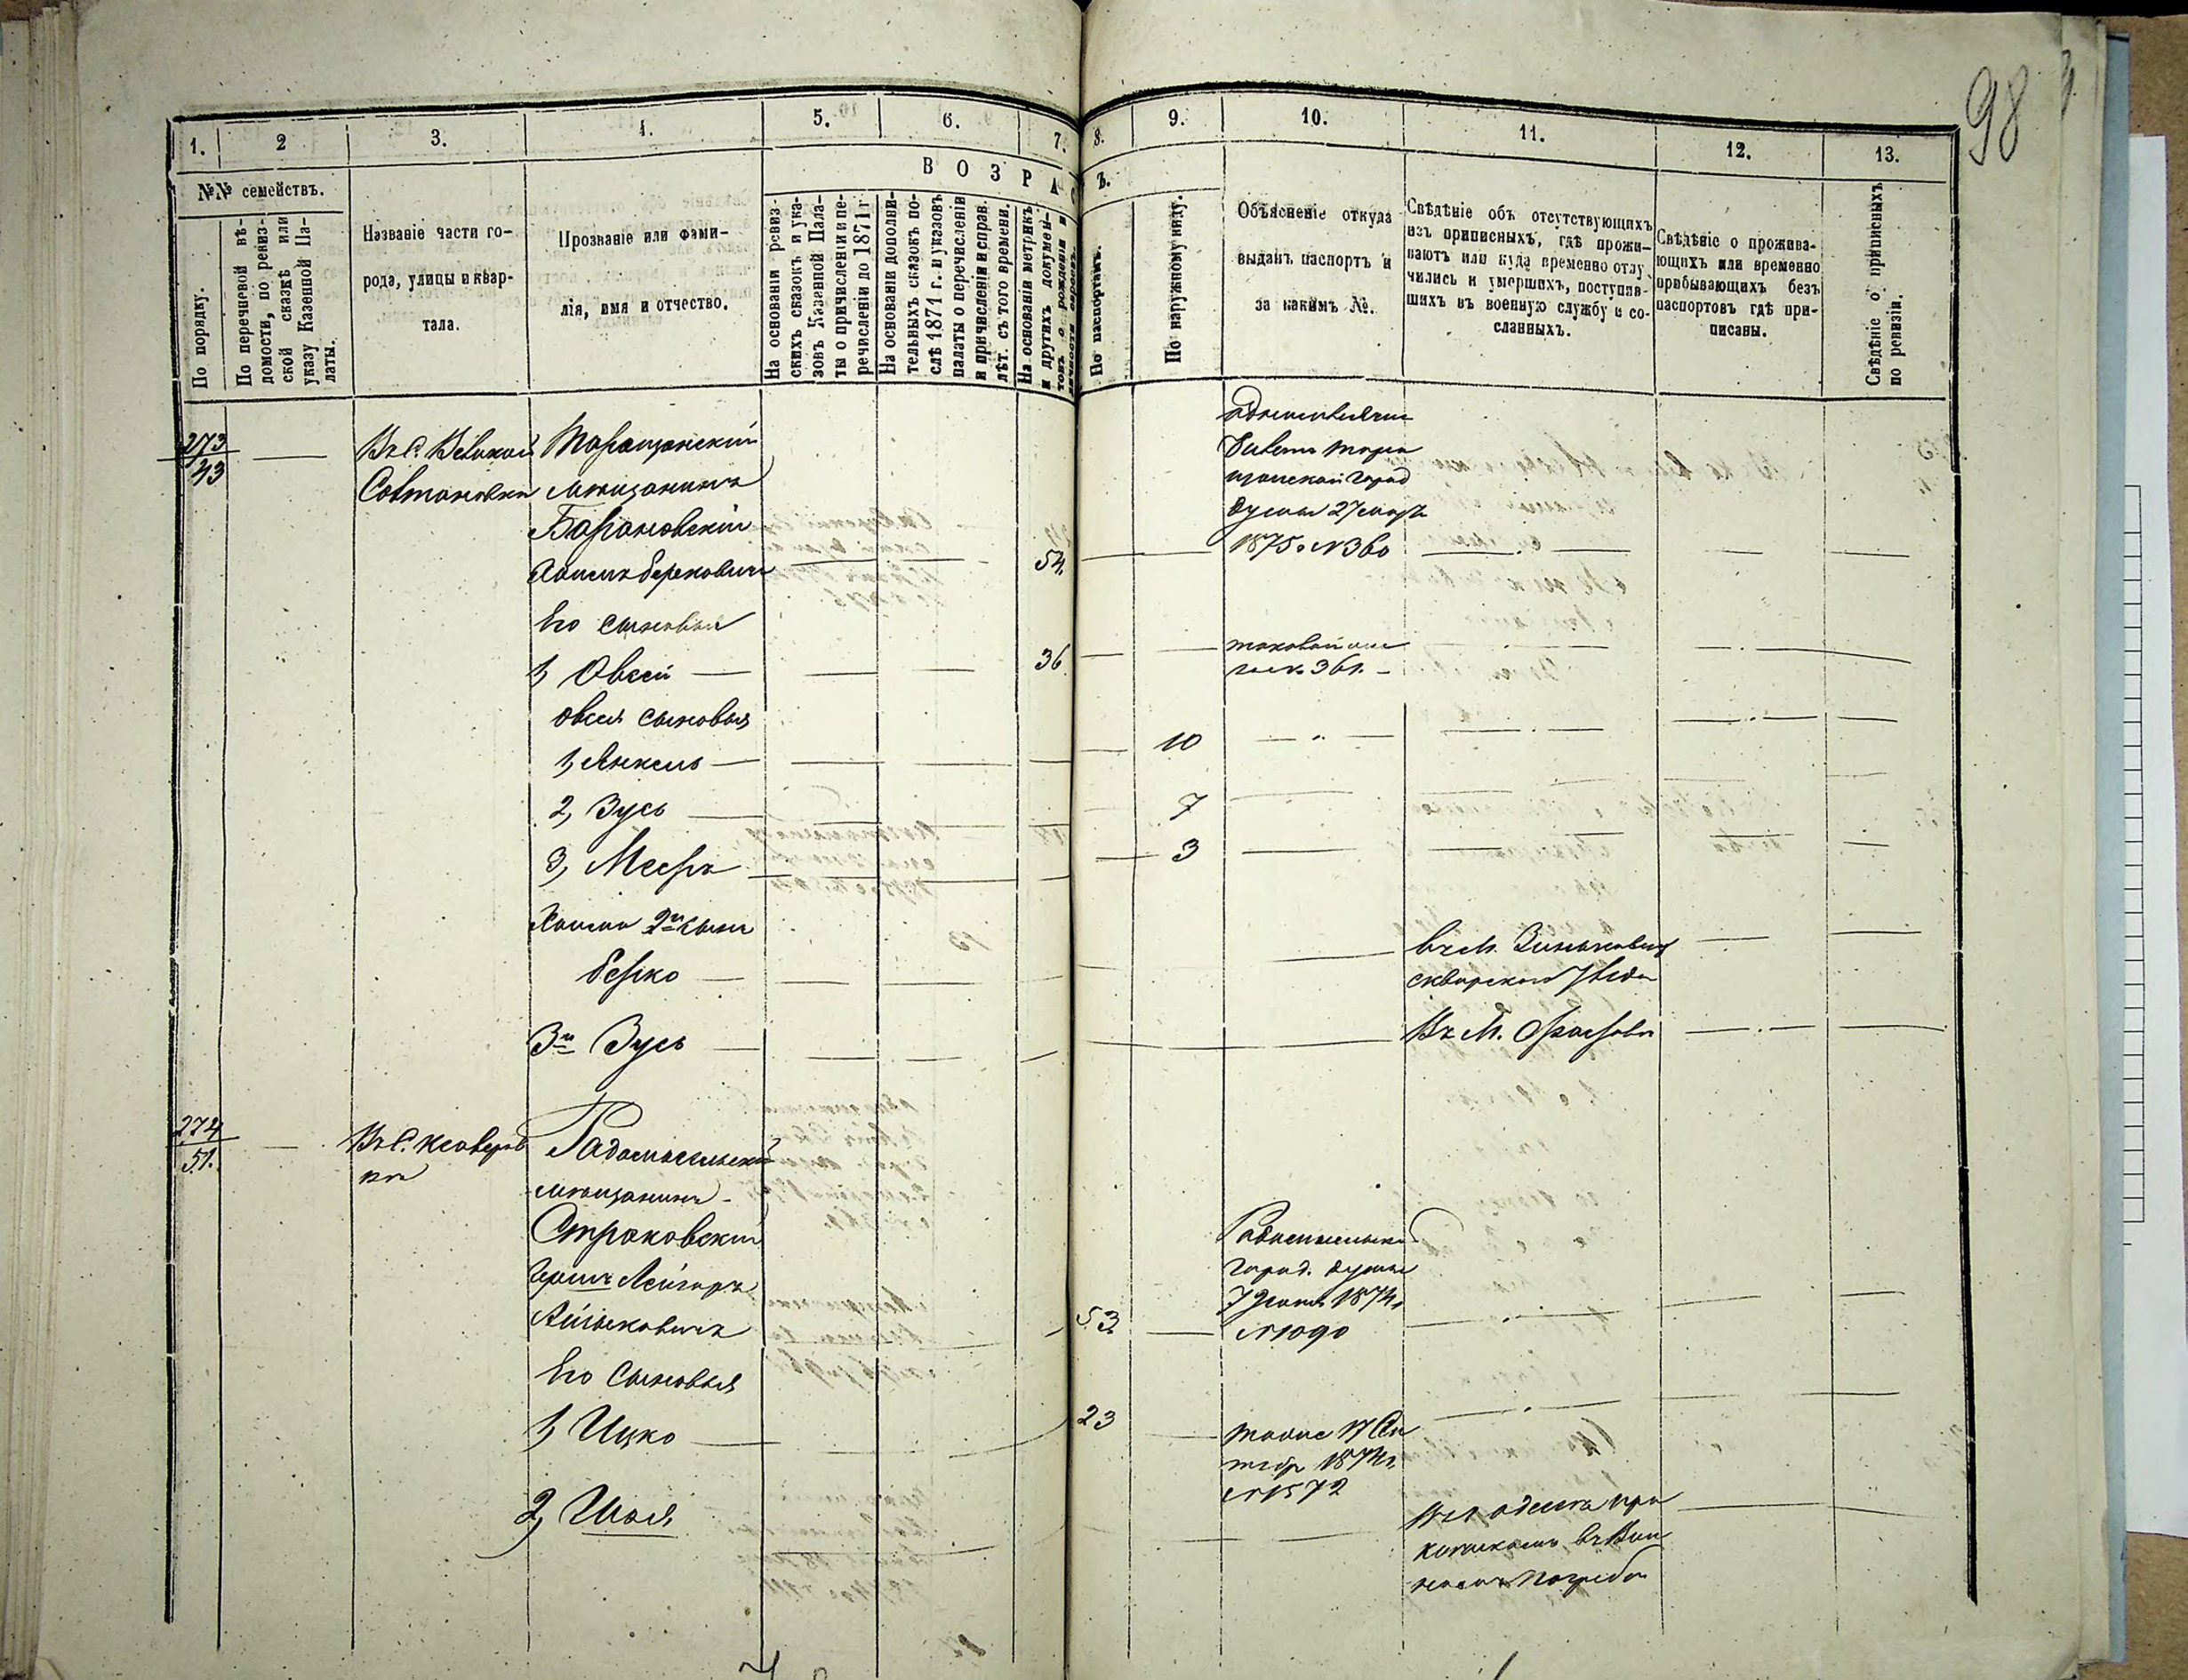 98
1.
2
3.
4.
5.
6.
7.
8.
9.
10.
11.
12.
13.
№№ семействъ.
ВОЗРАС
Ъ.
По порядку.
По перечневой вѣ-
домости, по ревиз-
ской сказкѣ или
указу Казенной Па-
латы.
Названіе части го-
рода, улицы и квар-
тала.
Прозваніе или фами-
лія, имя и отчество.
На основаніи ревиз-
скихъ сказокъ и ука-
зовъ Казенной Пала-
ты о причисленіи и пе-
речисленіи до 1871 г.
На основаніи дополни-
тельныхъ сказокъ по-
слѣ 1871 г. и указовъ
палаты о перечисленіи
и причисленіи и справ.
лѣт. съ того времени.
На основаніи метрикъ
и другихъ докумен-
товъ о рожденіи и
По паспортамъ.
По наружному виду.
Объясненіе откуда
выданъ паспортъ и
за какимъ №.
Свѣдѣніе объ отсутствующихъ
изъ приписныхъ, гдѣ прожи-
ваютъ или куда временно отлу-
чились и умершихъ, поступив-
шихъ въ военную службу и со-
сланныхъ.
Свѣдѣніе о прожива-
ющихъ или временно
прибывающихъ безъ
паспортовъ гдѣ при-
писаны.
Свѣдѣніе о приписныхъ
по ревизіи.
273
43
Въ с. Великой
Таращанскій
мѣщанинъ
Барановскій
Хаимъ Берковичъ
54.
билетъ Тара
щанской город
думы 27 мар
1875 г. № 360
Его сыновья
1, Овсей
36
таковой же
за № 361.
Овсея сыновья
1, Янкель
10
2, Зусь
7
3, Мееръ
3
Хаима 2й сынъ
Берко
въ м.
сквирскаго уѣзда
3й Зусь
Въ М.
274
51.
Въ с. Ксаверов
ка
Радомысльскій
мѣщанинъ
Страковскій
Гершъ Лейзоръ
53.
Радомысльской
город. думы
7 1874 г.
№ 1090
Его сыновья
1, Ицко
23
тоже 17 Сен
тябр 1874 г.
№ 1572
2, Шая
въ г. Одесса при
кащикомъ въ Вин
номъ погребѣ